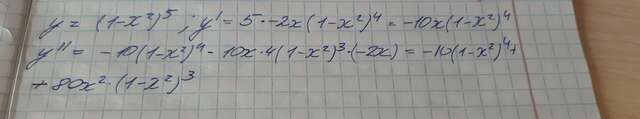 y = (1-x²)⁵ ; y' = 5·-2x(1-x²)⁴ = -10x(1-x²)⁴
y'' = -10(1-x²)⁴ - 10x·4(1-x²)³·(-2x) = -10(1-x²)⁴+
+ 80x²·(1-x²)³